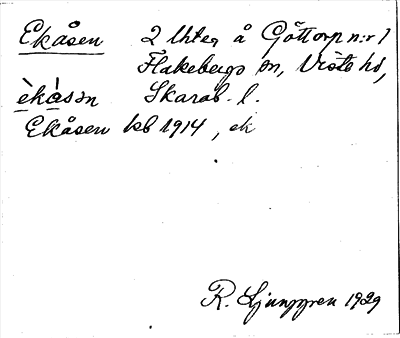 Ekåsen 2 lhter å Göttorp n:r 1
Flakebergs sn, Viste hd,
èkåsən Skarab. l.
Ekåsen kb 1914, ek
R. Ljunggren 1929